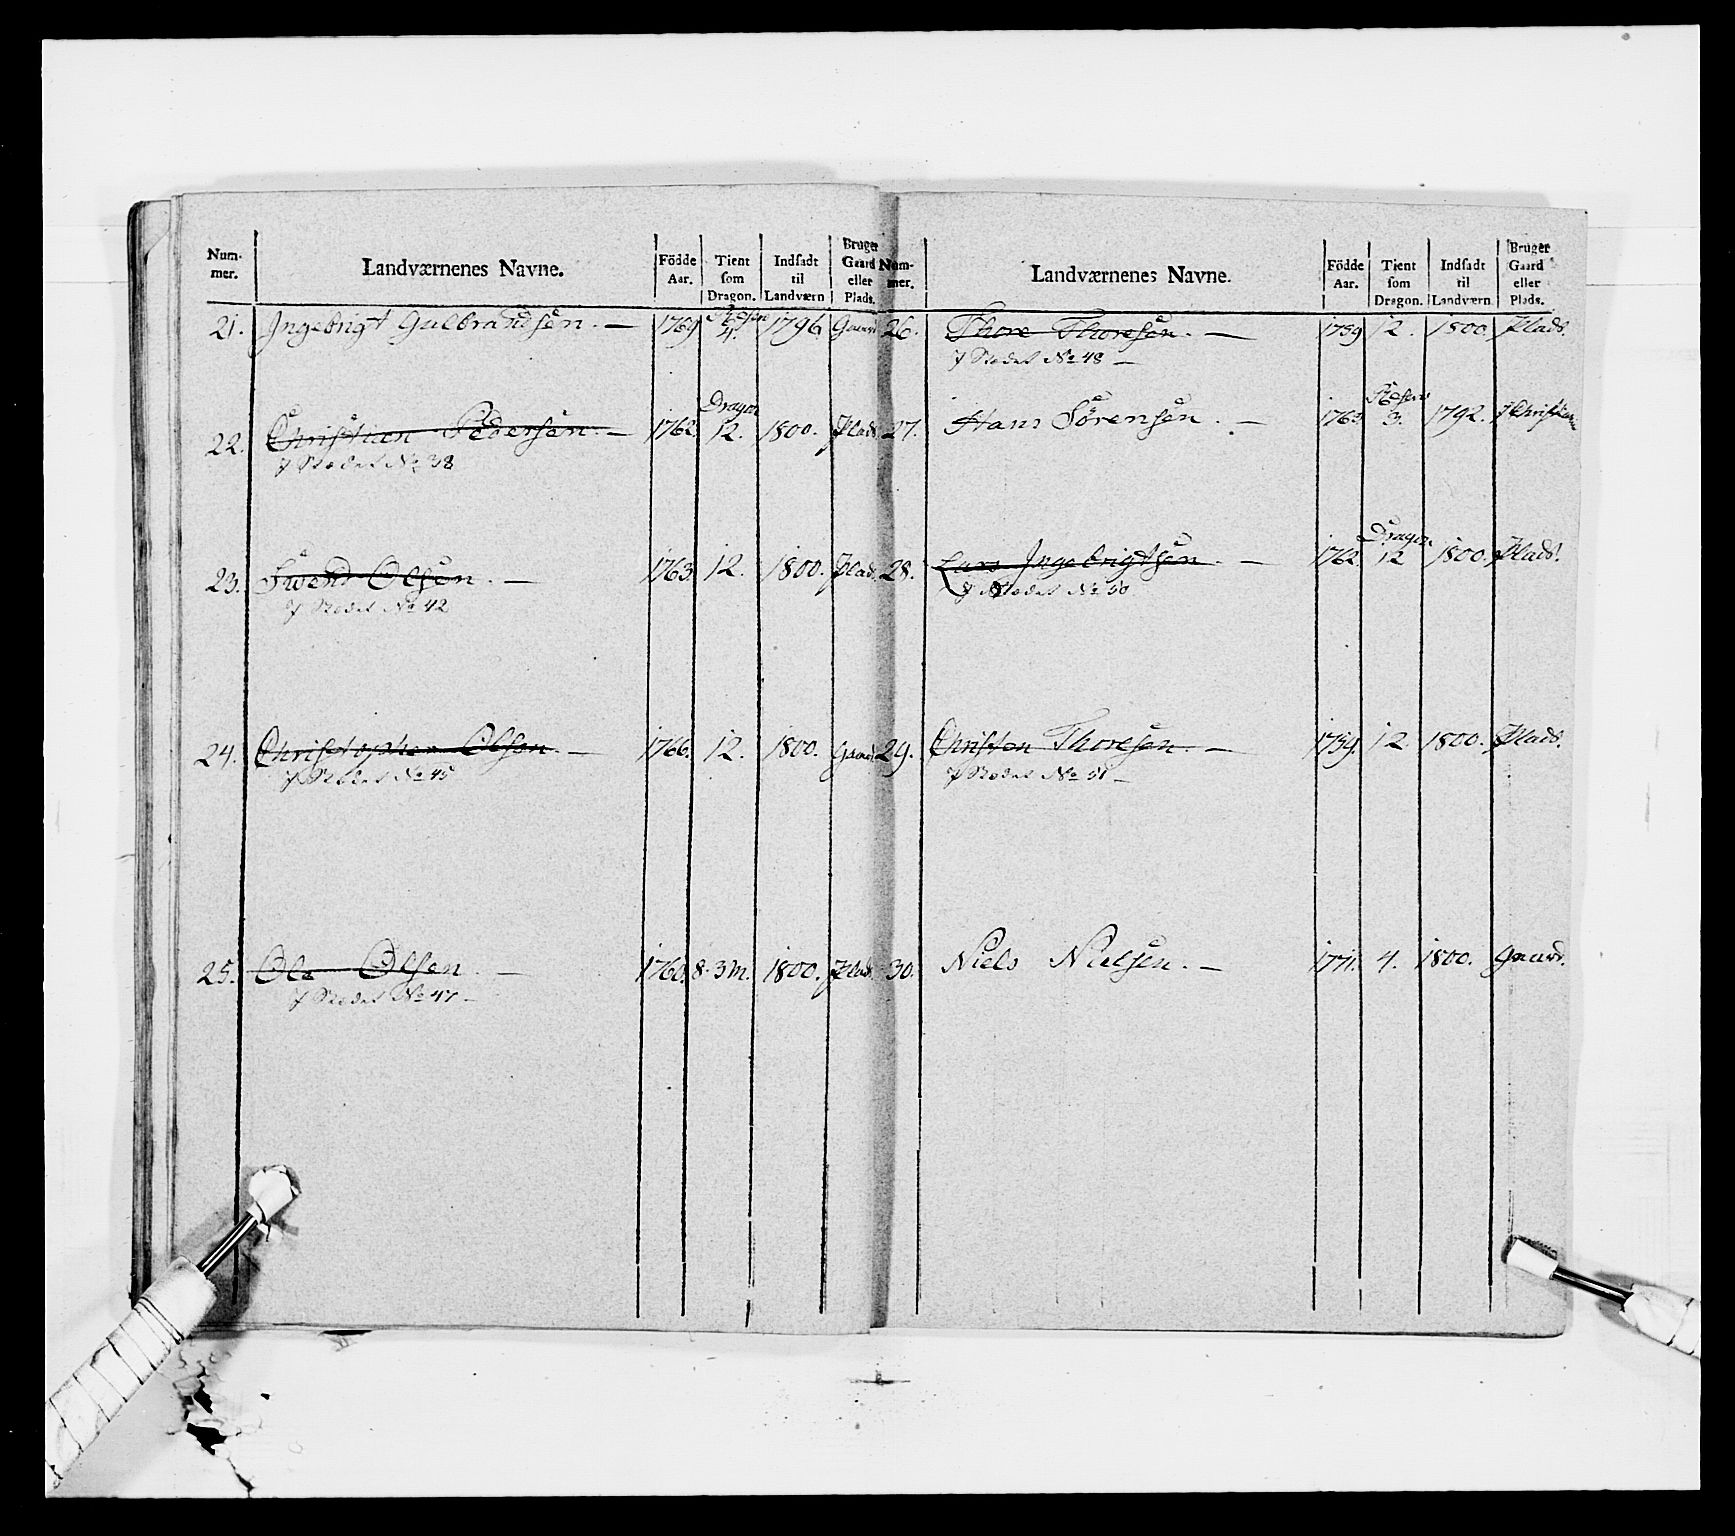 Num-
mer.
Landværnenes Navne.
Födde
Aar.
Tient
som
Dragon.
Indsadt
til
Landværn
Bruger
Gaard
eller
Plads.
21. Ingebrigt Gulbrandsen. — 4. 1796 Gaard
Dragon
22. Christian Pedersen. — 1762 12. 1800. Plads.
I Stedet No 38
23. Svend Olsen. — 1763 12. 1800. Plads.
I Stedet No 42
24. Christopher Olsen. — 1766. 12. 1800. Gaard
I Stedet No 45
25. Ole Olsen. — 1760. 8. 3 m. 1800. Plads.
I Stedet No 47 —
Num-
mer.
Landværnenes Navne.
Födde
Aar.
Tient
som
Dragon.
Indsadt
til
Landværn
Bruger
Gaard
eller
Plads.
26. Thore Thoresen. — 1759 12. 1800. Plads.
I Stedet No 48 —
27. Hans Sörensen. — 1763 3. 1792.
Dragon
28. Lars Ingebrigtsen. — 1762. 12 1800. Plads.
I Stedet No 50
29. Christen Thoresen. — 1759. 12. 1800. Plads.
I Stedet No 51 —
30. Niels Nielsen. — 1771. 4. 1800. Gaard.